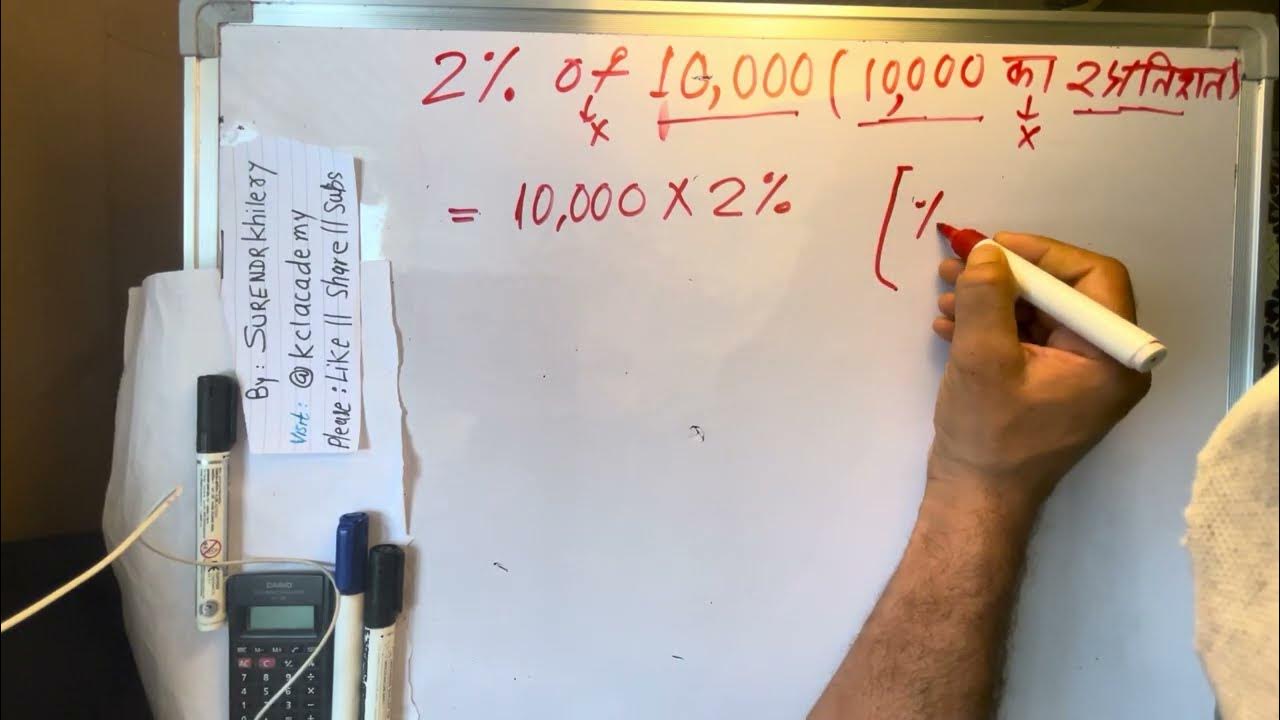 2% of 10,000 ( 10,000 का 2 प्रतिशत)
↓ x ↓ x
= 10,000 X 2% [ %
By: SURENDRKhilery
Visit: @kclacademy
Please: Like || Share || Subs
CASIO
AC C
7 8 9
4 5 6 ×
1 2 3 −